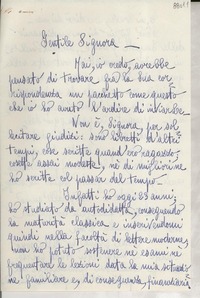 Gentile Signora —
Mai, io credo, avrebbe
pensato di trovare fra la sua cor-
rispondenza un pacchetto come questo
che io ho avuto l'ardire di inviarle.
Non è, Signora, per sol-
lecitare giudizi: sono libretti d'altri
tempi, che scritte quand'ero ragazzo
cose assai modeste, né di migliori
ho scritte col passar del tempo.
Infatti ho oggi 83 anni;
ho studiato da autodidatta, conseguendo
la maturità classica e inscrivendomi
quindi nella facoltà di lettere moderne,
non ho potuto sostenere né esami né
frequentare le lezioni data la mia
familiare e, di conseguenza, finanziaria